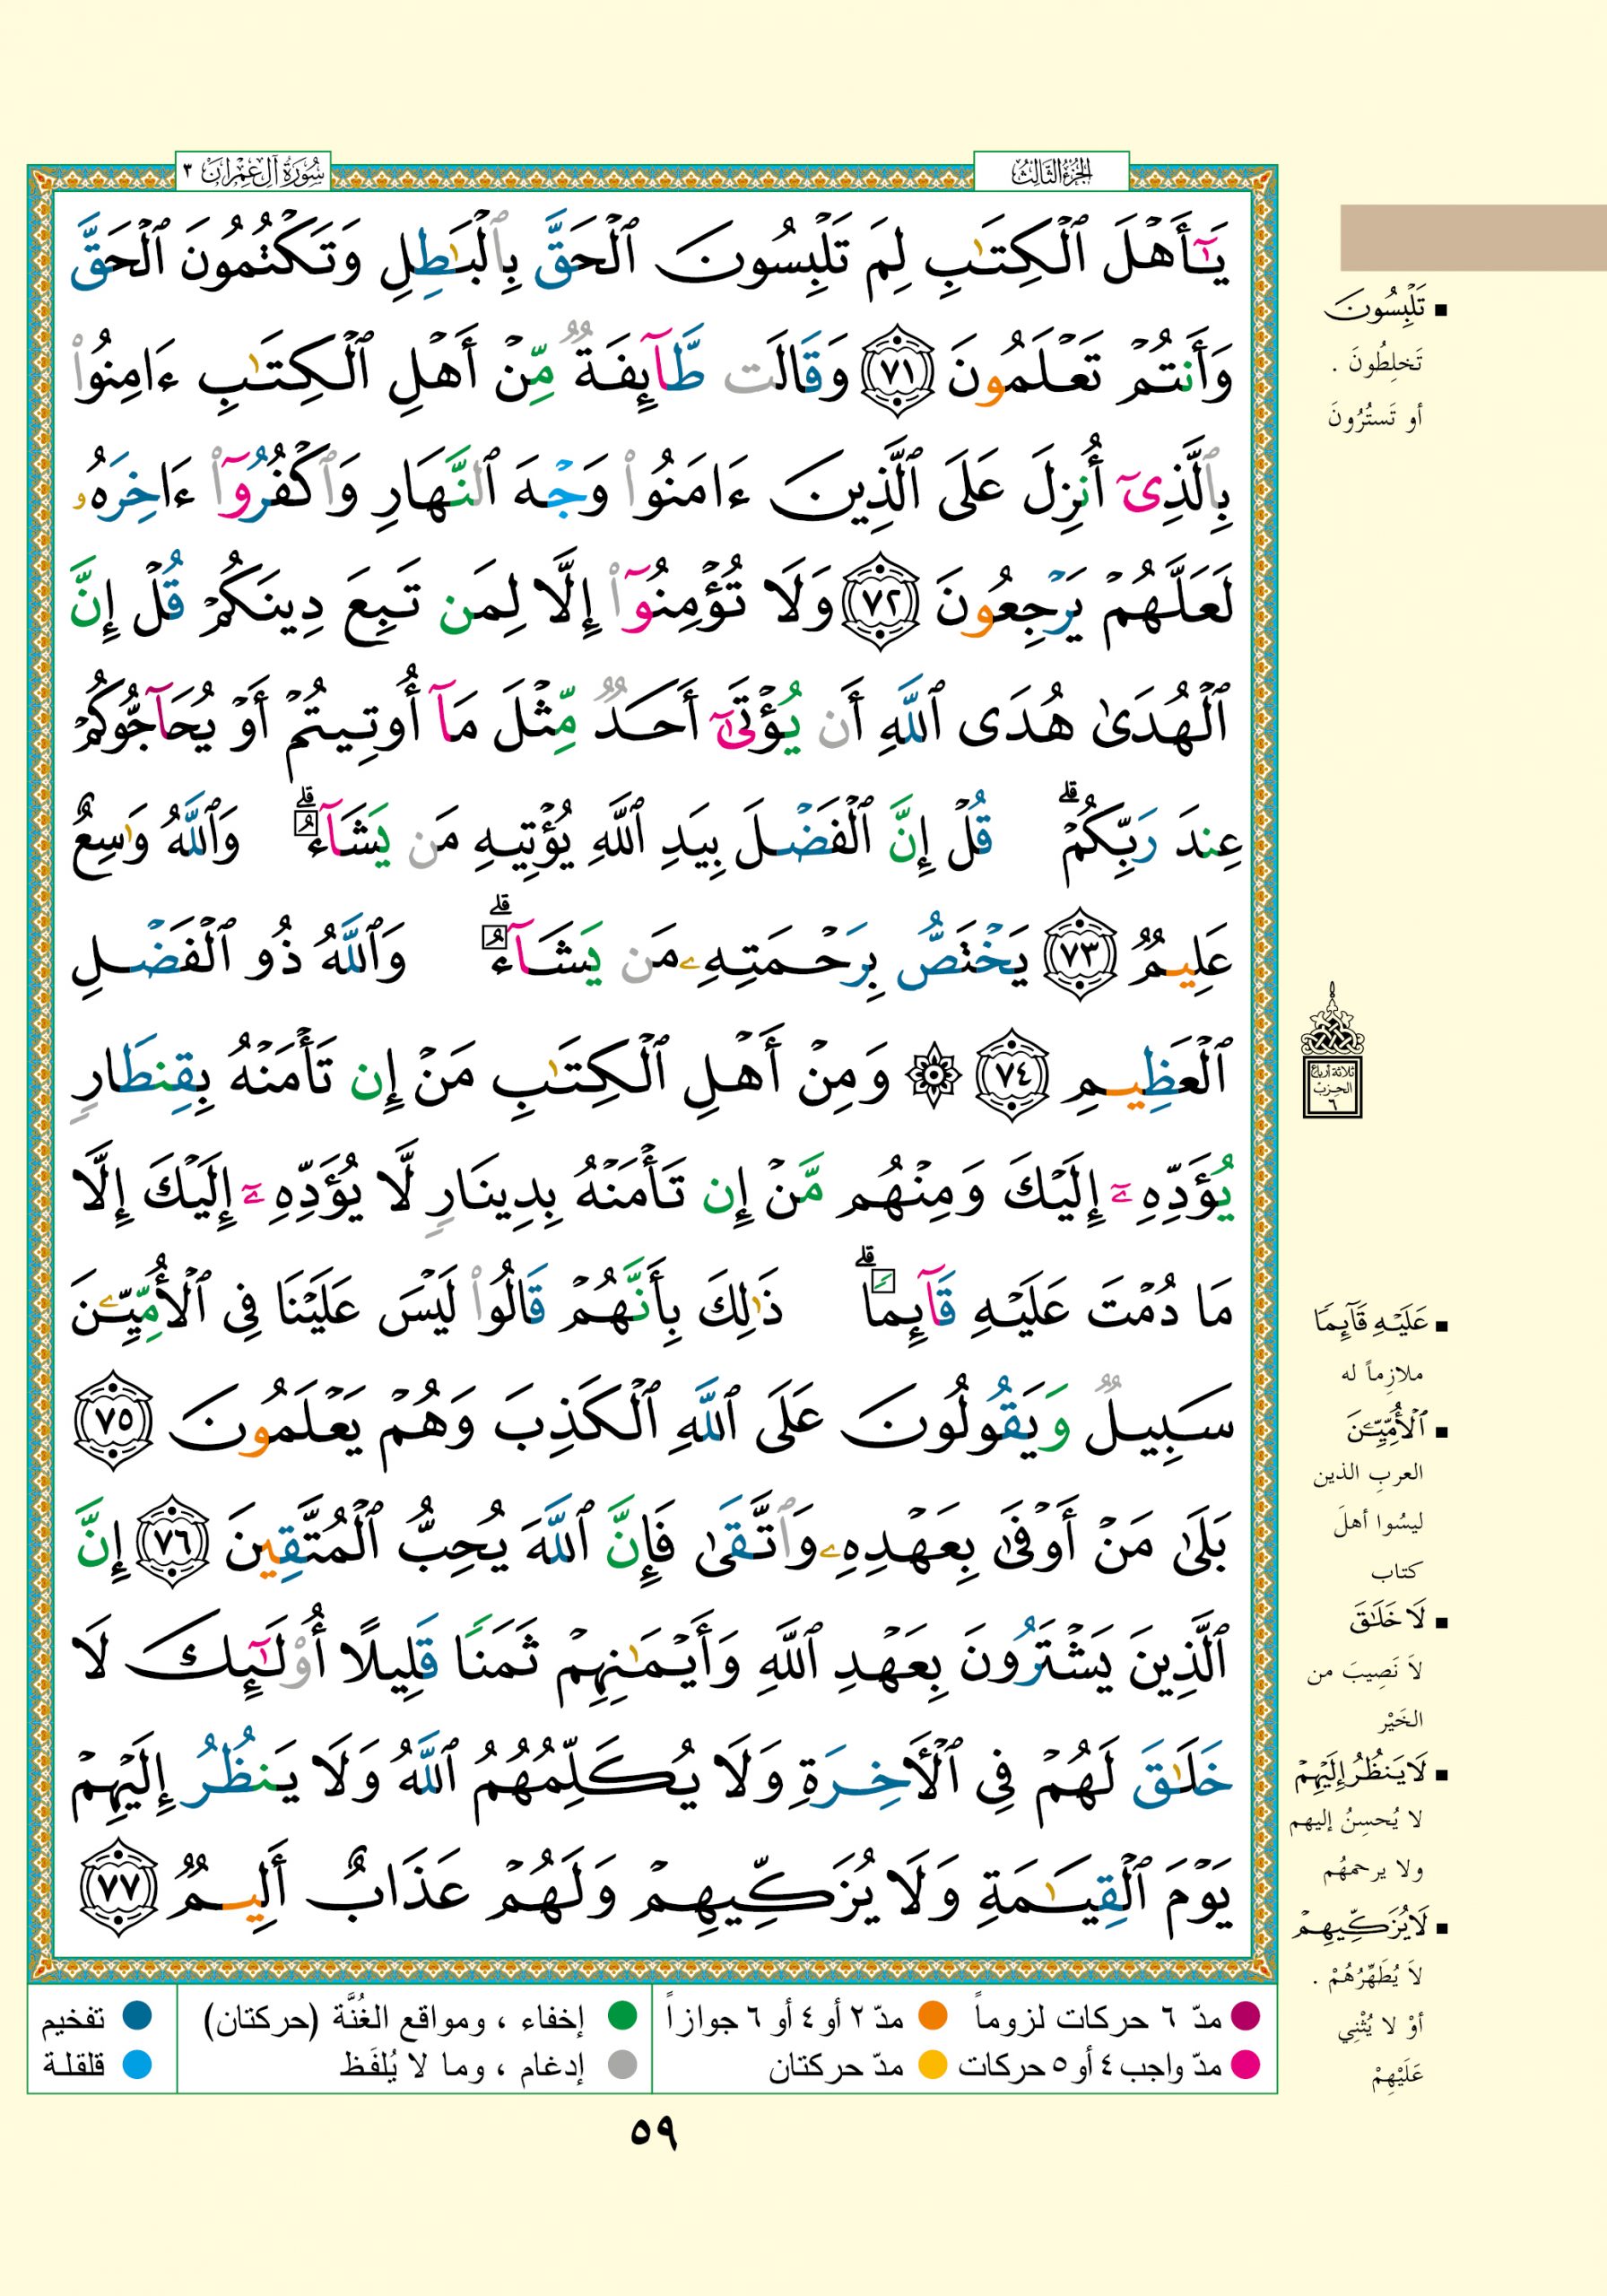 الجزء الثالث
سورة آل عمران ٣
يَـٰٓأَهْلَ ٱلْكِتَـٰبِ لِمَ تَلْبِسُونَ ٱلْحَقَّ بِٱلْبَـٰطِلِ وَتَكْتُمُونَ ٱلْحَقَّ
وَأَنتُمْ تَعْلَمُونَ ٧١ وَقَالَت طَّآئِفَةٌ مِّنْ أَهْلِ ٱلْكِتَـٰبِ ءَامِنُوا۟
بِٱلَّذِىٓ أُنزِلَ عَلَى ٱلَّذِينَ ءَامَنُوا۟ وَجْهَ ٱلنَّهَارِ وَٱكْفُرُوٓا۟ ءَاخِرَهُۥ
لَعَلَّهُمْ يَرْجِعُونَ ٧٢ وَلَا تُؤْمِنُوٓا۟ إِلَّا لِمَن تَبِعَ دِينَكُمْ قُلْ إِنَّ
ٱلْهُدَىٰ هُدَى ٱللَّهِ أَن يُؤْتَىٰٓ أَحَدٌ مِّثْلَ مَآ أُوتِيتُمْ أَوْ يُحَآجُّوكُمْ
عِندَ رَبِّكُمْ ۗ قُلْ إِنَّ ٱلْفَضْلَ بِيَدِ ٱللَّهِ يُؤْتِيهِ مَن يَشَآءُ ۗ وَٱللَّهُ وَٰسِعٌ
عَلِيمٌ ٧٣ يَخْتَصُّ بِرَحْمَتِهِۦ مَن يَشَآءُ ۗ وَٱللَّهُ ذُو ٱلْفَضْلِ
ٱلْعَظِيمِ ٧٤ ۞ وَمِنْ أَهْلِ ٱلْكِتَـٰبِ مَنْ إِن تَأْمَنْهُ بِقِنطَارٍ
يُؤَدِّهِۦٓ إِلَيْكَ وَمِنْهُم مَّنْ إِن تَأْمَنْهُ بِدِينَارٍ لَّا يُؤَدِّهِۦٓ إِلَيْكَ إِلَّا
مَا دُمْتَ عَلَيْهِ قَآئِمًا ۗ ذَٰلِكَ بِأَنَّهُمْ قَالُوا۟ لَيْسَ عَلَيْنَا فِى ٱلْأُمِّيِّـۧنَ
سَبِيلٌ وَيَقُولُونَ عَلَى ٱللَّهِ ٱلْكَذِبَ وَهُمْ يَعْلَمُونَ ٧٥
بَلَىٰ مَنْ أَوْفَىٰ بِعَهْدِهِۦ وَٱتَّقَىٰ فَإِنَّ ٱللَّهَ يُحِبُّ ٱلْمُتَّقِينَ ٧٦ إِنَّ
ٱلَّذِينَ يَشْتَرُونَ بِعَهْدِ ٱللَّهِ وَأَيْمَـٰنِهِمْ ثَمَنًا قَلِيلًا أُو۟لَـٰٓئِكَ لَا
خَلَـٰقَ لَهُمْ فِى ٱلْـَٔاخِرَةِ وَلَا يُكَلِّمُهُمُ ٱللَّهُ وَلَا يَنظُرُ إِلَيْهِمْ
يَوْمَ ٱلْقِيَـٰمَةِ وَلَا يُزَكِّيهِمْ وَلَهُمْ عَذَابٌ أَلِيمٌ ٧٧
▪ تَلْبِسُونَ
تَخلِطُونَ .
أو تَستُرُونَ
ثلاثة أرباع
الحزب
٦
▪ عَلَيْهِ قَآئِمًا
ملازِماً له
▪ ٱلْأُمِّيِّـۧنَ
العربِ الذين
ليسُوا أهلَ
كتاب
▪ لَا خَلَـٰقَ
لاَ نَصِيبَ من
الخَيْر
▪ لَا يَنظُرُ إِلَيْهِمْ
لا يُحسِنُ إليهم
ولا يرحمُهُم
▪ لَا يُزَكِّيهِمْ
لاَ يُطَهِّرُهُمْ .
أوْ لا يُثْنِي
عَلَيْهِمْ
مدّ ٦ حركات لزوماً
مدّ ٢ أو ٤ أو ٦ جوازاً
إخفاء ، ومواقع الغُنَّة (حركتان)
تفخيم
مدّ واجب ٤ أو ٥ حركات
مدّ حركتان
إدغام ، وما لا يُلفَظ
قلقلة
٥٩